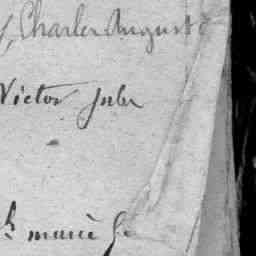 Charles Auguste
Victor Jules
marié